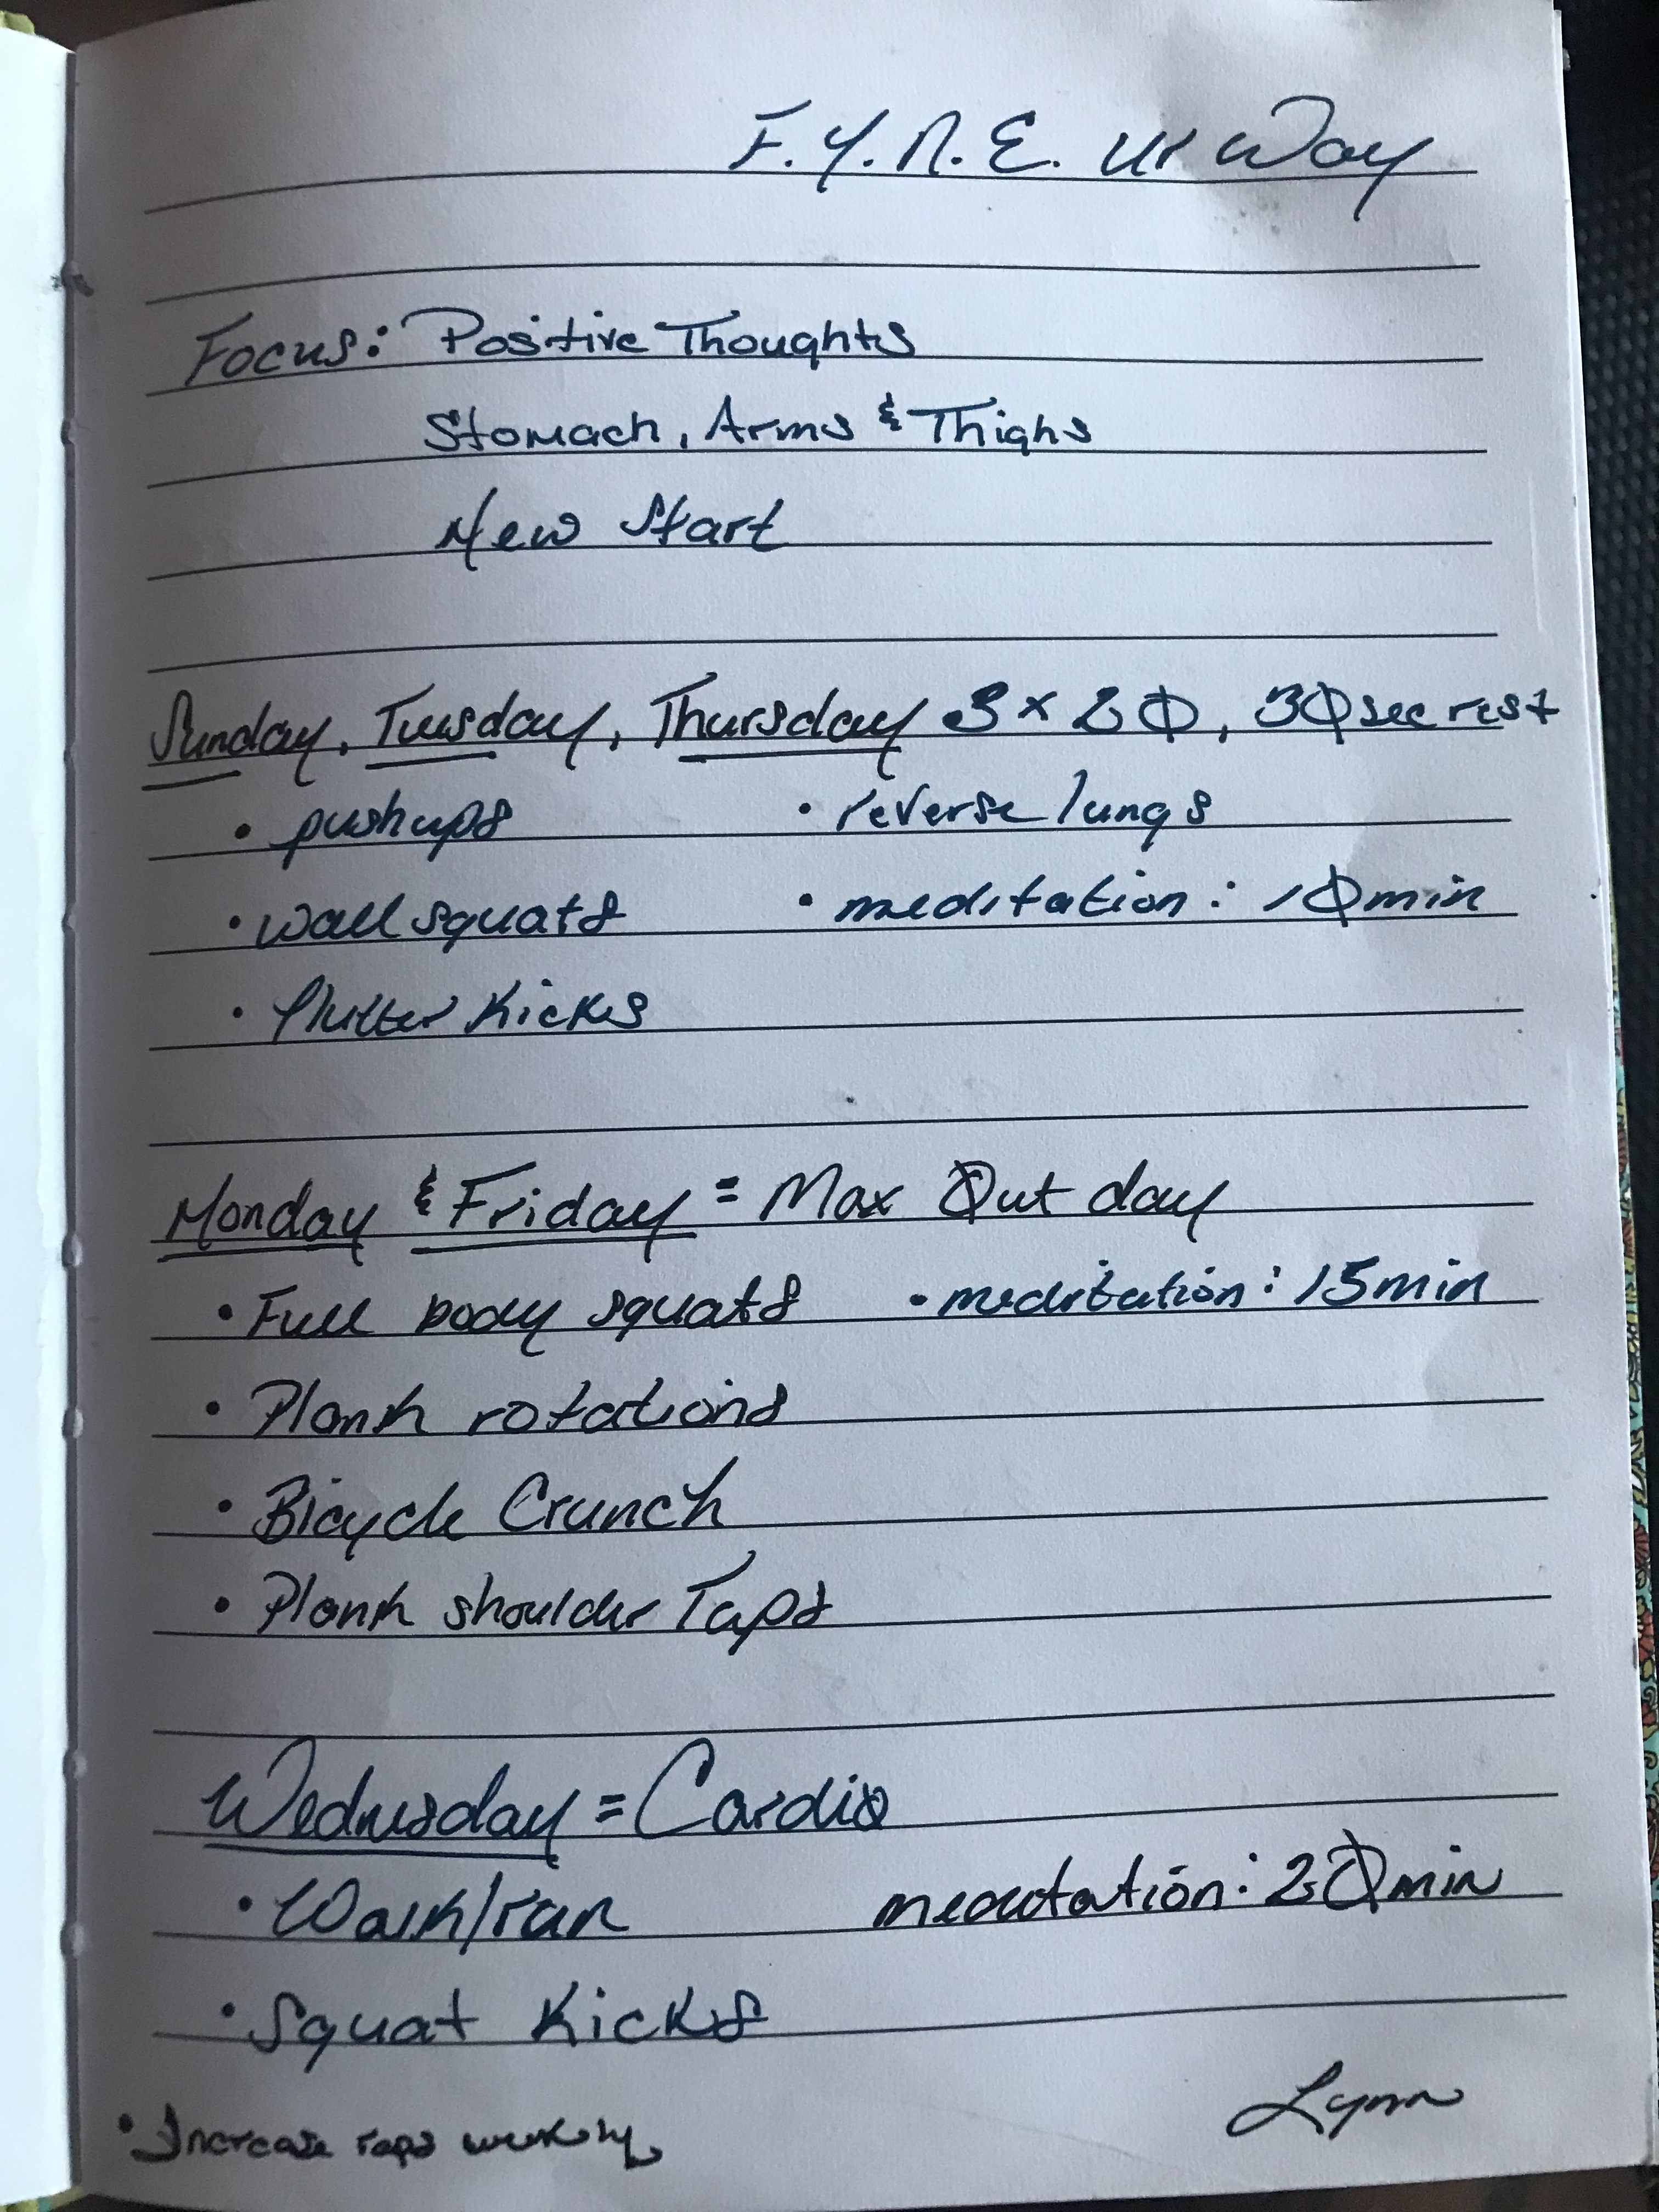 F.Y.N.E. Ur Way
Focus: Positive Thoughts
Stomach, Arms & Thighs
New Start
Sunday, Tuesday, Thursday 3 x 20, 30 sec rest
• pushups • reverse lungs
• wall squats • meditation: 10 min
• flutter Kicks
Monday & Friday = Max Out day
• Full body squats • meditation: 15 min
• Plank rotations
• Bicycle Crunch
• Plank shoulder Taps
Wednesday = Cardio
• Walk/run meditation: 20 min
• Squat Kicks
• Increase raps weekly
Lynn